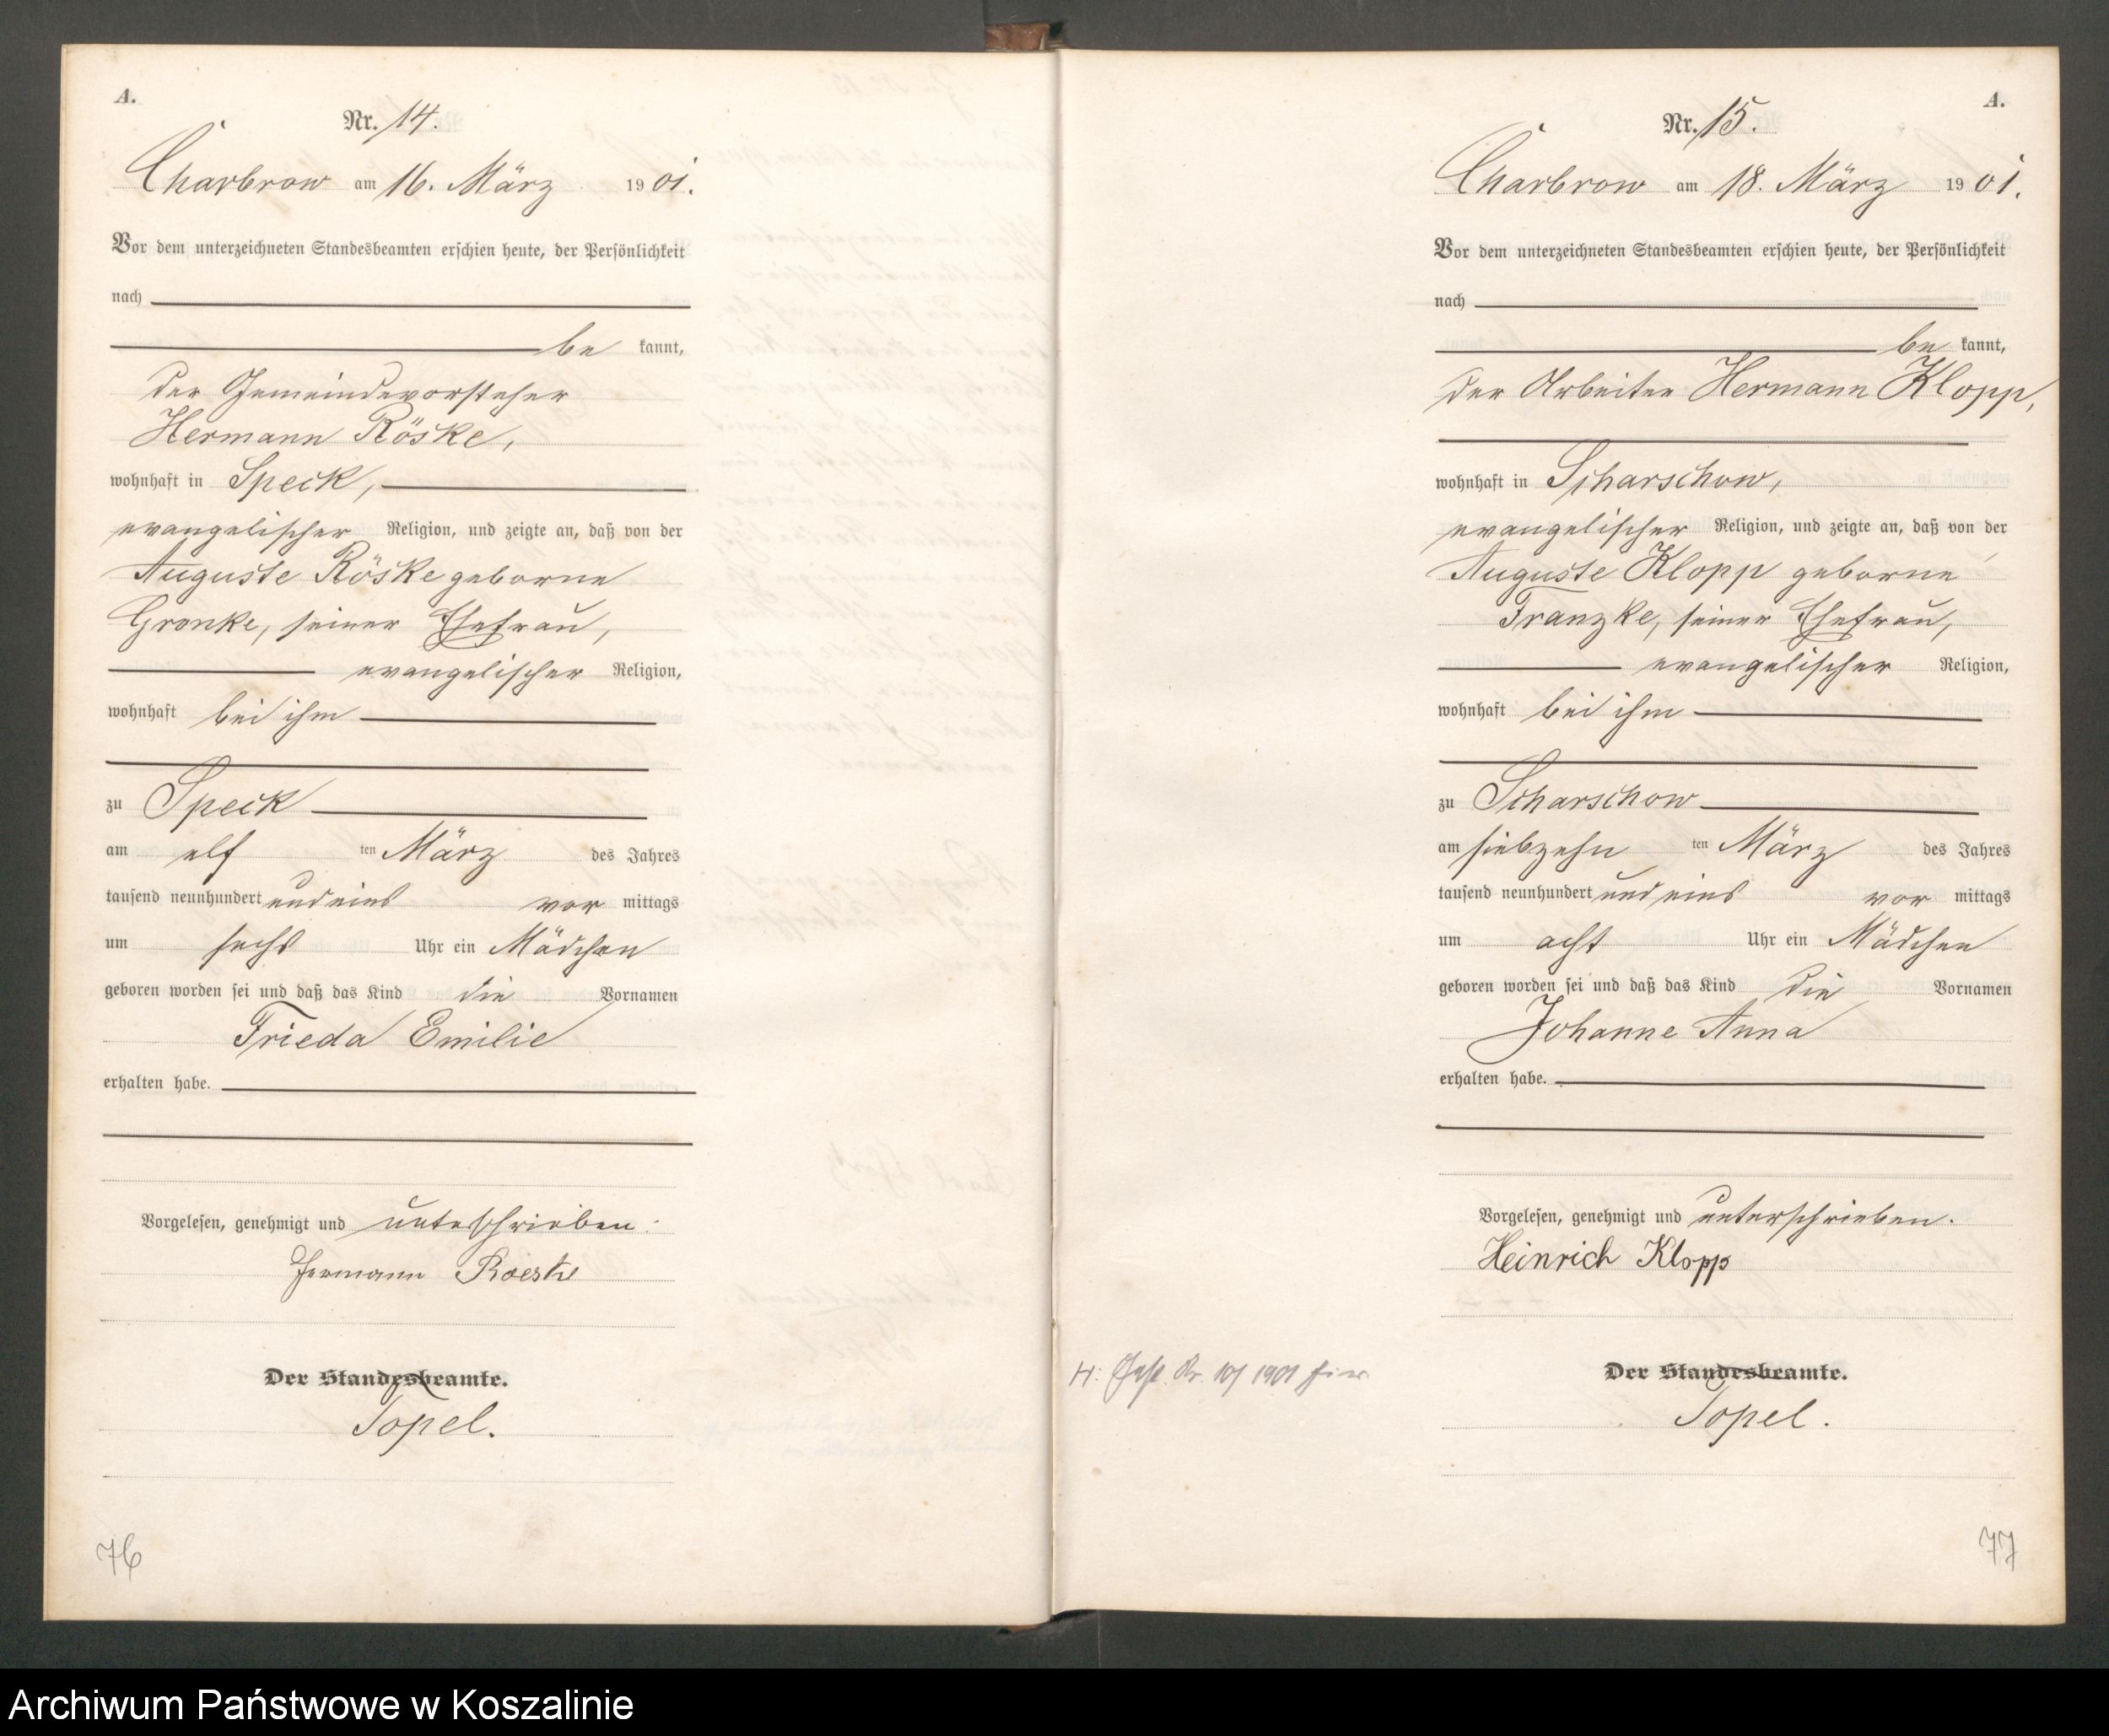 A.
Nr. 14.
Charbrow am 16. März 1901.
Vor dem unterzeichneten Standesbeamten erschien heute, der Persönlichkeit
nach
be kannt,
der Gemeindevorsteher
Hermann Röske,
wohnhaft in Speck,
evangelischer Religion, und zeigte an, daß von der
Auguste Röske geborne
Gronke, seiner Ehefrau,
evangelischer Religion,
wohnhaft bei ihm
zu Speck
am elf ten März des Jahres
tausend neunhundert und eins vor mittags
um sechs Uhr ein Mädchen
geboren worden sei und daß das Kind die Vornamen
Frieda Emilie
erhalten habe.
Vorgelesen, genehmigt und unterschrieben.
Hermann Roeske
Der Standesbeamte.
Topel.
76
A.
Nr. 15.
Charbrow am 18. März 1901.
Vor dem unterzeichneten Standesbeamten erschien heute, der Persönlichkeit
nach
be kannt,
der Arbeiter Hermann Klopp,
wohnhaft in Scharschow,
evangelischer Religion, und zeigte an, daß von der
Auguste Klopp geborne
Franzke, seiner Ehefrau,
evangelischer Religion,
wohnhaft bei ihm
zu Scharschow
am siebzehn ten März des Jahres
tausend neunhundert und eins vor mittags
um acht Uhr ein Mädchen
geboren worden sei und daß das Kind die Vornamen
Johanne Anna
erhalten habe.
Vorgelesen, genehmigt und unterschrieben.
Heinrich Klopp
Der Standesbeamte.
Topel.
H: Nr. 1901 hier
77
Archiwum Państwowe w Koszalinie